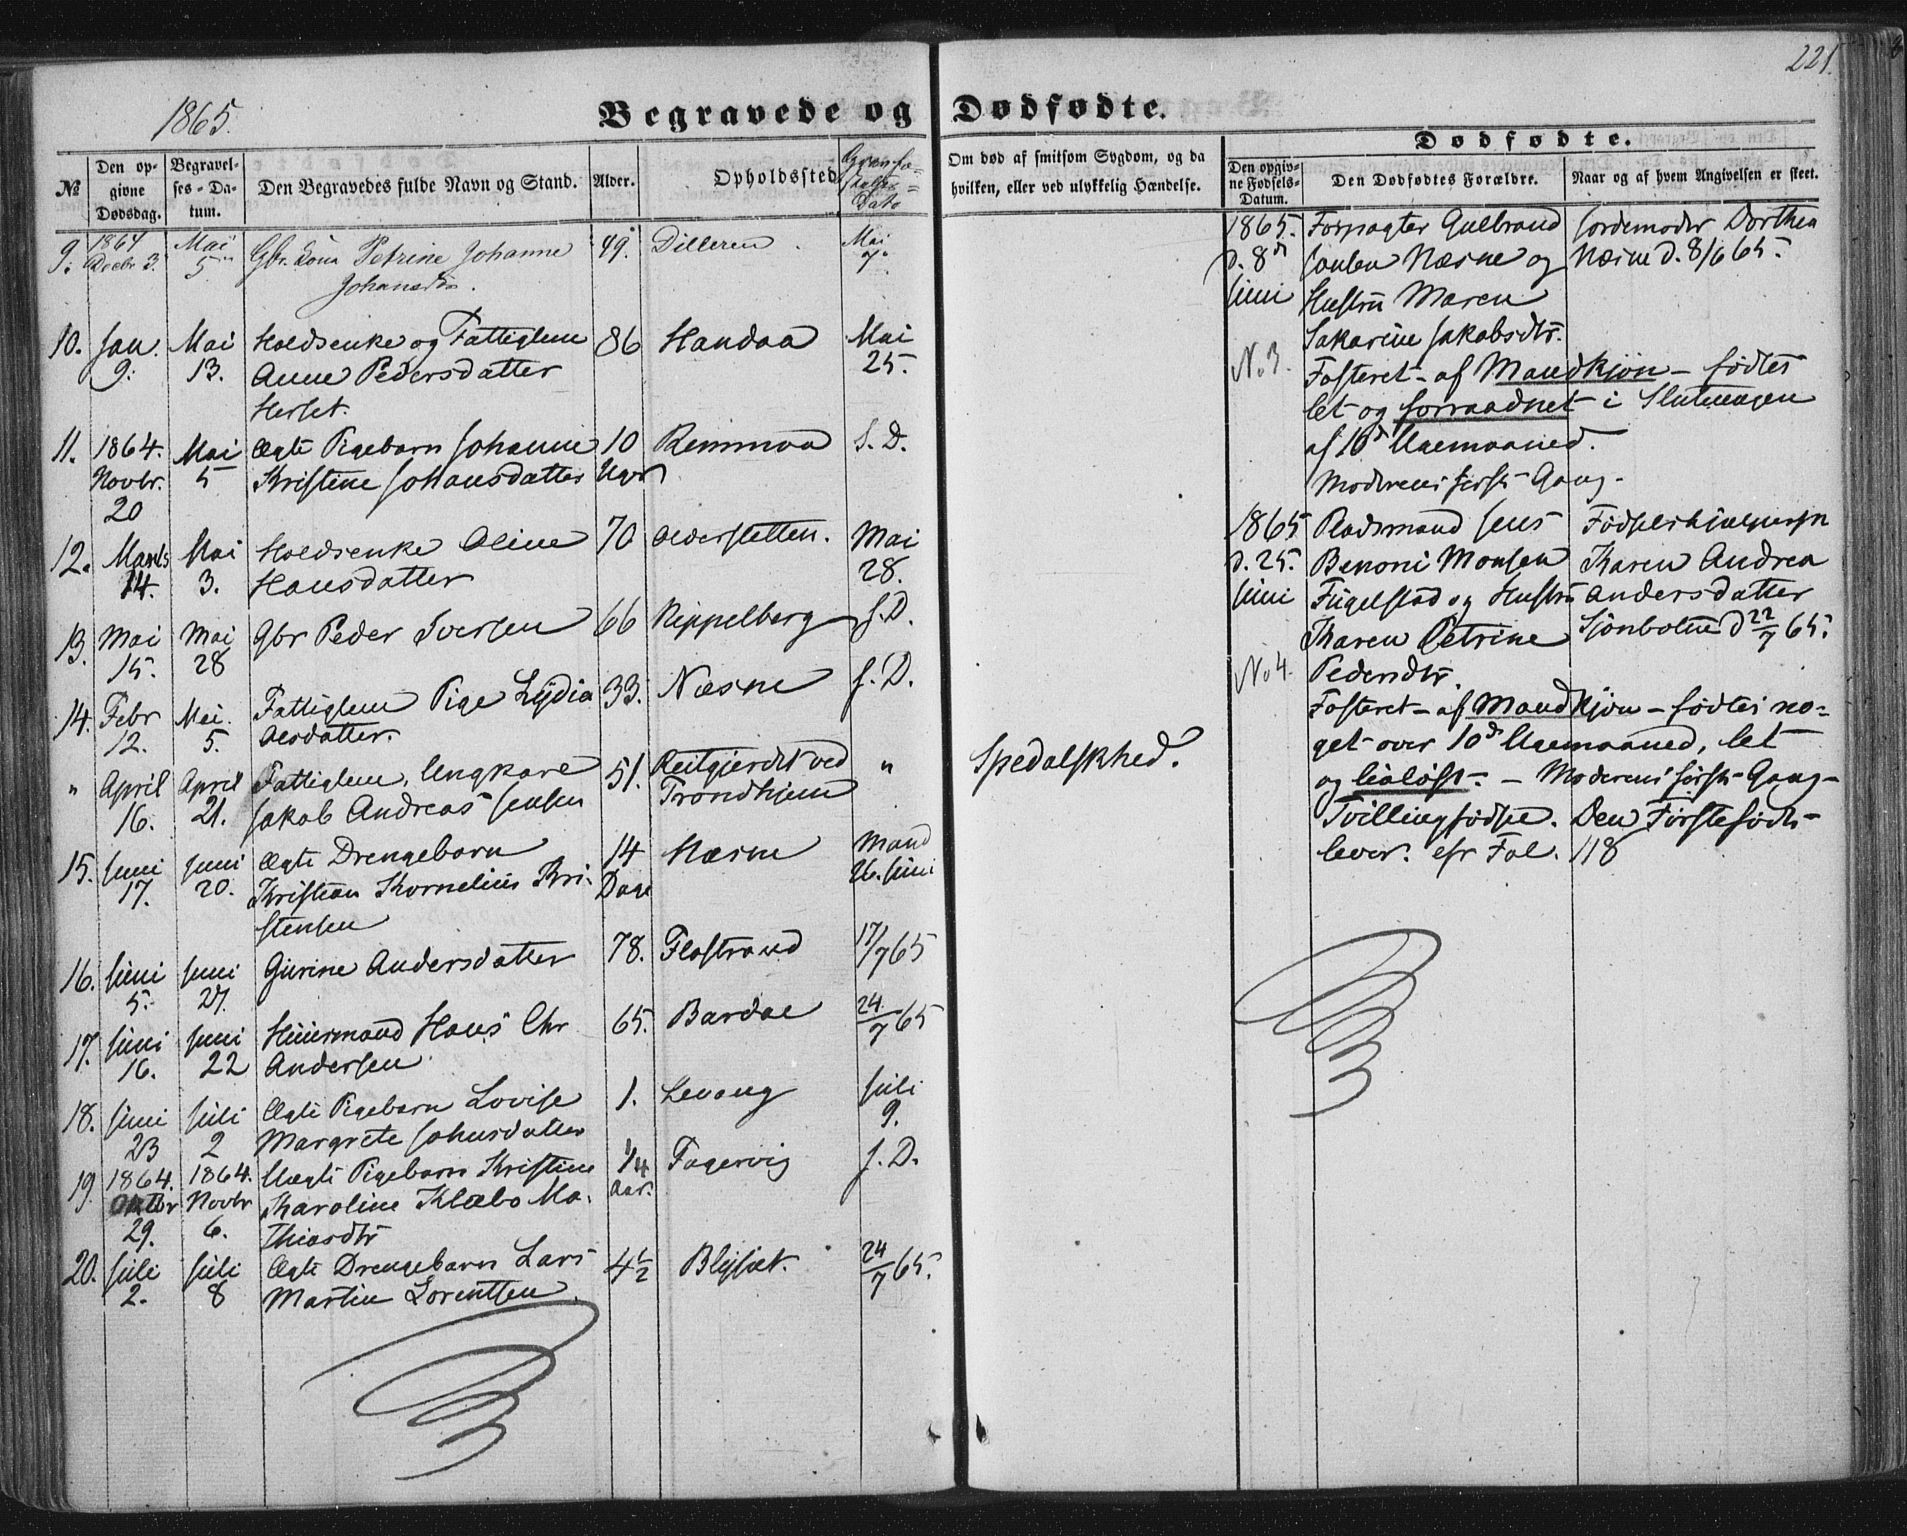 221.
1865.
Begravede og Dødfødte.
Dødfødte.
No
Den opgivne Dødsdag.
Begravelses-Datum.
Den Begravedes fulde Navn og Stand.
Alder.
Opholdssted
Dato
Om død af smitsom Sygdom, og da hvilken, eller ved ulykkelig Hændelse.
Den opgivne Fødsels-Datum.
Den Dødfødtes Forældre.
Naar og af hvem Angivelsen er skeet.
9. 1864 Decbr 3. Mai 5 Gbr. Kona Petrine Johanne 49. Dilleren. Mai 7.
Johansdtr.
10. Jan. 9. Mai 13. Holdsenke og Fattiglem 86 Handaa Mai 25.
Anne Pedersdatter
Herset.
11. 1864. Novbr. 20 Mai 5 Ægte Pigebarn Johanne 10 Uger Remmaa S. D.
Kristine Johansdatter
12. Marts 14. Mai 3. Holdsenke Oline 70 Alderstetten. Mai 28.
Hansdatter
13. Mai 15. Mai 28 Gbr Peder Iversen 66 Kippelberg S. D.
14. Febr 12. Mai. 5. Fattiglem Pige Lydia 33. Næsne S. D.
Olsdatter.
" April 16. April 21. Fattiglem, Ungkare 51. Reitgjerdet ved Trondhjem " Spedalskhed.
Jakob Andreas Jensen
15. Juni 17. Juni 20. Ægte Drengebarn 14 Dage Næsne Mand 26. Juni
Kristian Kornelius Kri-
stensen
16. Juni 5. Juni 27. Gurine Andersdatter 78. Flostrand 17/7 65
17. Juni 16. Juni 22 Huusmand Hans Chr 65. Bardal 24/7 65
Andersen
18. Juni 23 Juli 2 Ægte Pigebarn Lovise 1. Levang Juli 9.
Margrete Johnsdatter
19. 1864. Oktbr 29. 1864. Novbr 6. Uægte Pigebarn Kristine 1/4 Aar. Fagervig S. D.
Karoline Klæbo Ma-
thiasdtr
20. Juli 2. Juli 8 Ægte Drengebarn Lars 4½ Blijset. 24/7 65.
Martin Lorentsen.
1865. d. 8d Juni
Forpagter Gulbrand
Paulsen Næsne og
Hustru Maren
Sakarine Jakobsdtr.
Jordemoder Dorthea
Næsne d. 8/6 65.
No 3.
Fosteret - af Mandkjøn - fødtes
let og forraadnet i Slutningen
af 10d Ugemaaned.
Moderens første Gang.
1865 d. 25. Juni
Baadsmand Jens
Benoni Monsen
Fugelstad og Hustru
Karen Petrine
Pedersdtr.
Fødselshjælpersken
Karen Andrea
Andersdatter
Sjonbotne d 22/7 65.
No 4.
Fosteret - af Mandkjøn - fødtes no-
get over 10d Ugemaaned, let
og livløst. - Moderens første Gang -
Tvillingfødsel. Den Førstefødte
lever. cfr Fol. 118